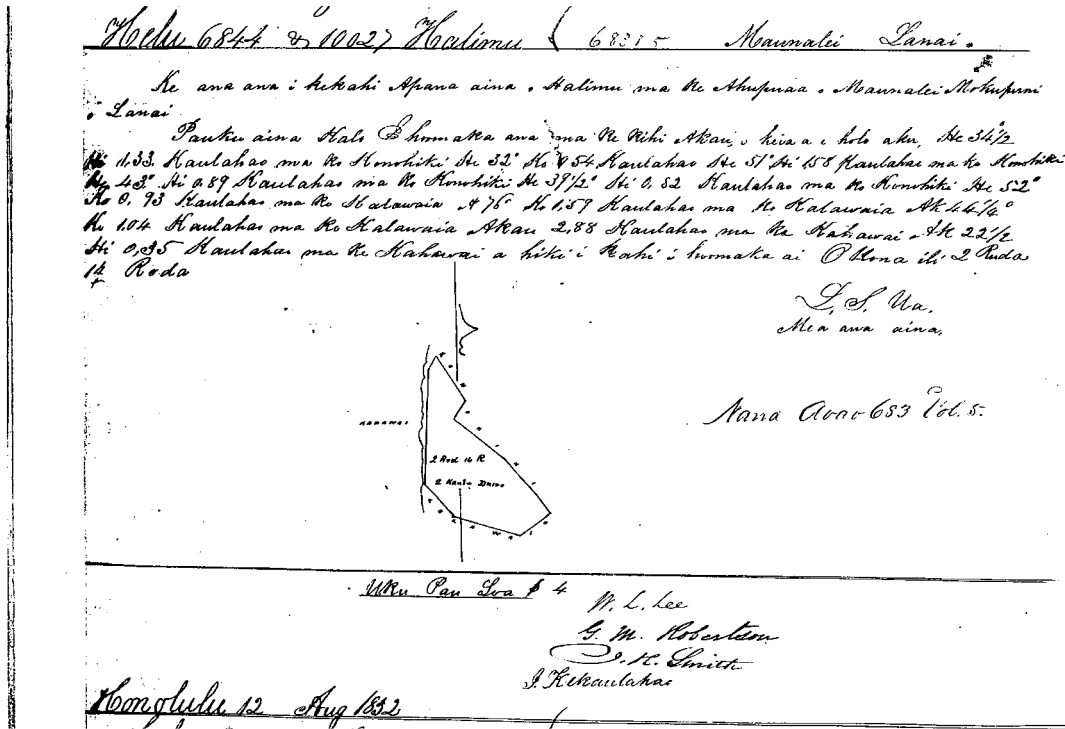 Helu 6844 & 10027 Halimu ( 6831 5 Maunalei Lanai.
Ke ana ana i kekahi Apana aina o Halimu ma ke Ahupuaa o Maunalei Mokupuni
o Lanai
Pauku aina Kalo E hoomaka ana ma ke kihi Akau, o keia a e holo aku, He 34 1/2
Ki 1.33 Kaulahao ma ko Konohiki He 32° Ko 0.54 Kaulahao He 51° Ki 1.58 Kaulahao ma ko Konohiki
He 43° Ki 0.89 Kaulahao ma ko Konohiki He 39 1/2° Ki 0,52 Kaulahao ma ko Konohiki He 52°
Ko 0,93 Kaulahao ma ko Kalawaia A 76° Ko 1.59 Kaulahao ma ko Kalawaia Ak 44 1/4°
Ko 1.04 Kaulahao ma ko Kalawaia Akau 2,88 Kaulahao ma ke Kahawai Ak 22 1/2
Ki 0,35 Kaulahao ma ke Kahawai a hiki i kahi i hoomaka ai O kona ili 2 Ruda
14 Roda
L. S. Ua.
Mea ana aina,
Nana Aoao 653 Vol. 5.
KAHAWAI
2 Rud 14 R
KALAWAIA
Uku Pau Loa $ 4
W. L. Lee
G. M. Robertson
J. H. Smith
J. Kekaulahao
Honolulu 12 Aug 1852